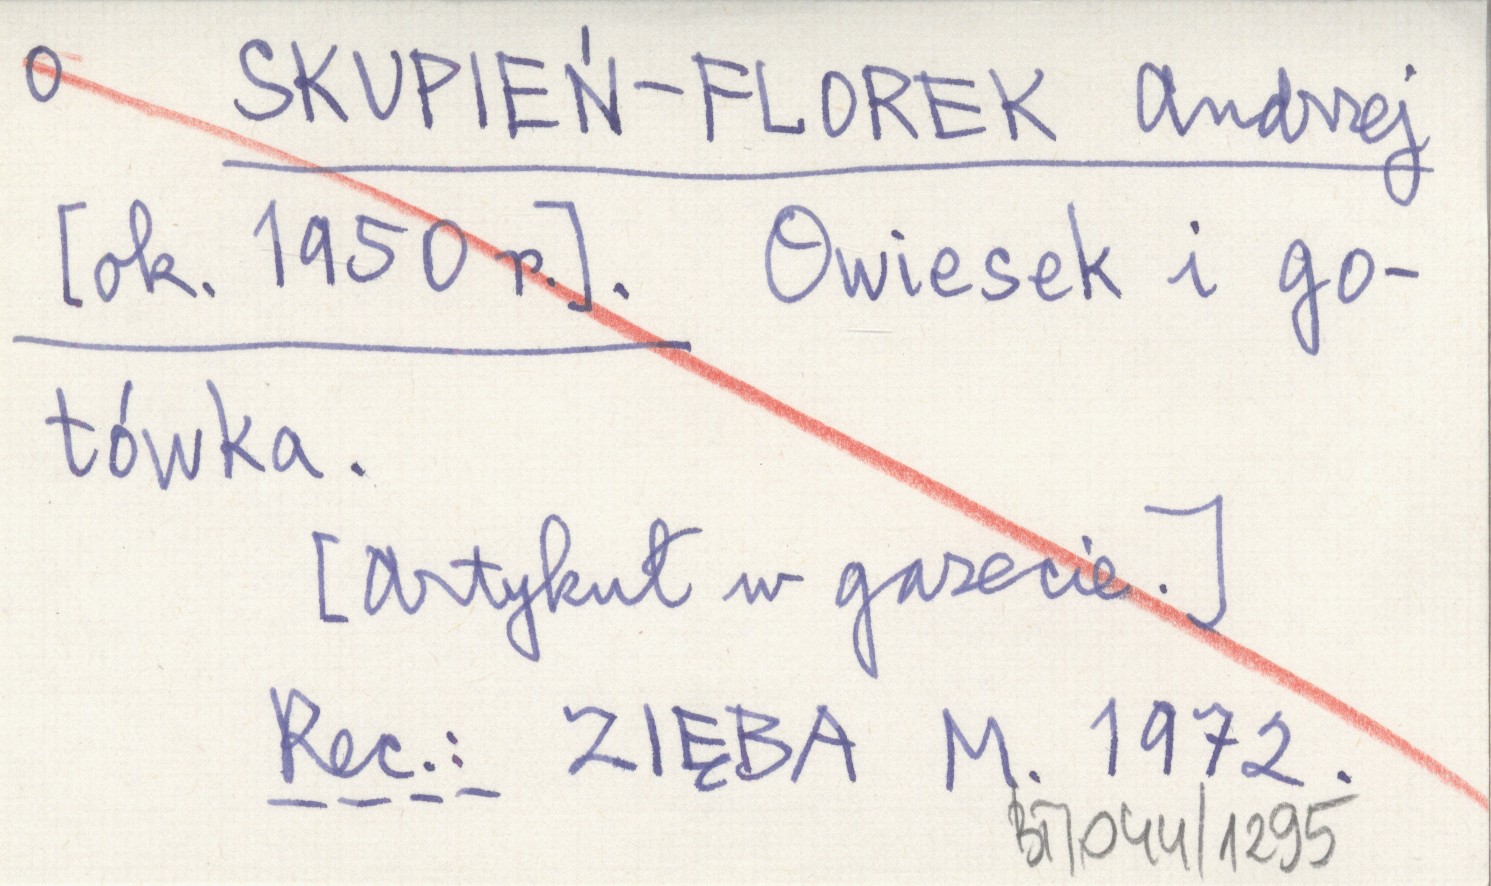 O SKUPIEŃ-FLOREK Andrzej
[ok. 1950 r.]. Owiesek i go-
tówka.
[Artykuł w gazecie.]
Rec.: ZIĘBA M. 1972.
BT/044/1295